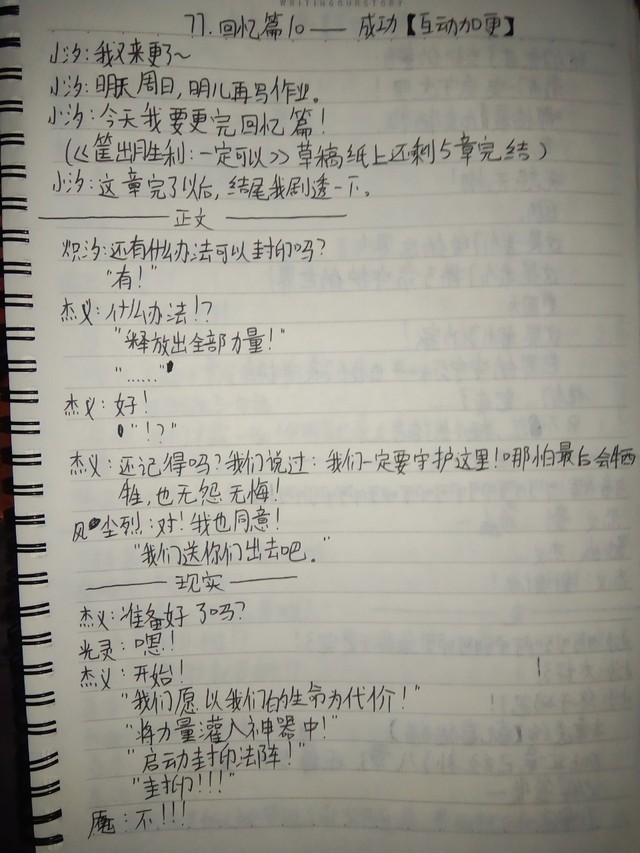 WRITING OUR STORY
77. 回忆篇10 —— 成功【互动加更】
小汐:我又来更了~
小汐:明天周日,明儿再写作业。
小汐:今天我要更完回忆篇!
(《筐出胜利:一定可以》草稿纸上还剩5章完结)
小汐:这章完了以后,结尾我剧透一下。
正文
炽汐:还有什么办法可以封印吗?
"有!"
杰义:什么办法!?
"释放出全部力量!"
"……"
杰义:好!
"!?"
杰义:还记得吗?我们说过:我们一定要守护这里!哪怕最后会牺
牲,也无怨无悔!
风尘烈:对!我也同意!
"我们送你们出去吧。"
现实
杰义:准备好了吗?
光灵:嗯!
杰义:开始!
"我们愿以我们的生命为代价!"
"将力量灌入神器中!"
"启动封印法阵!"
"封印!!!"
魔:不!!!